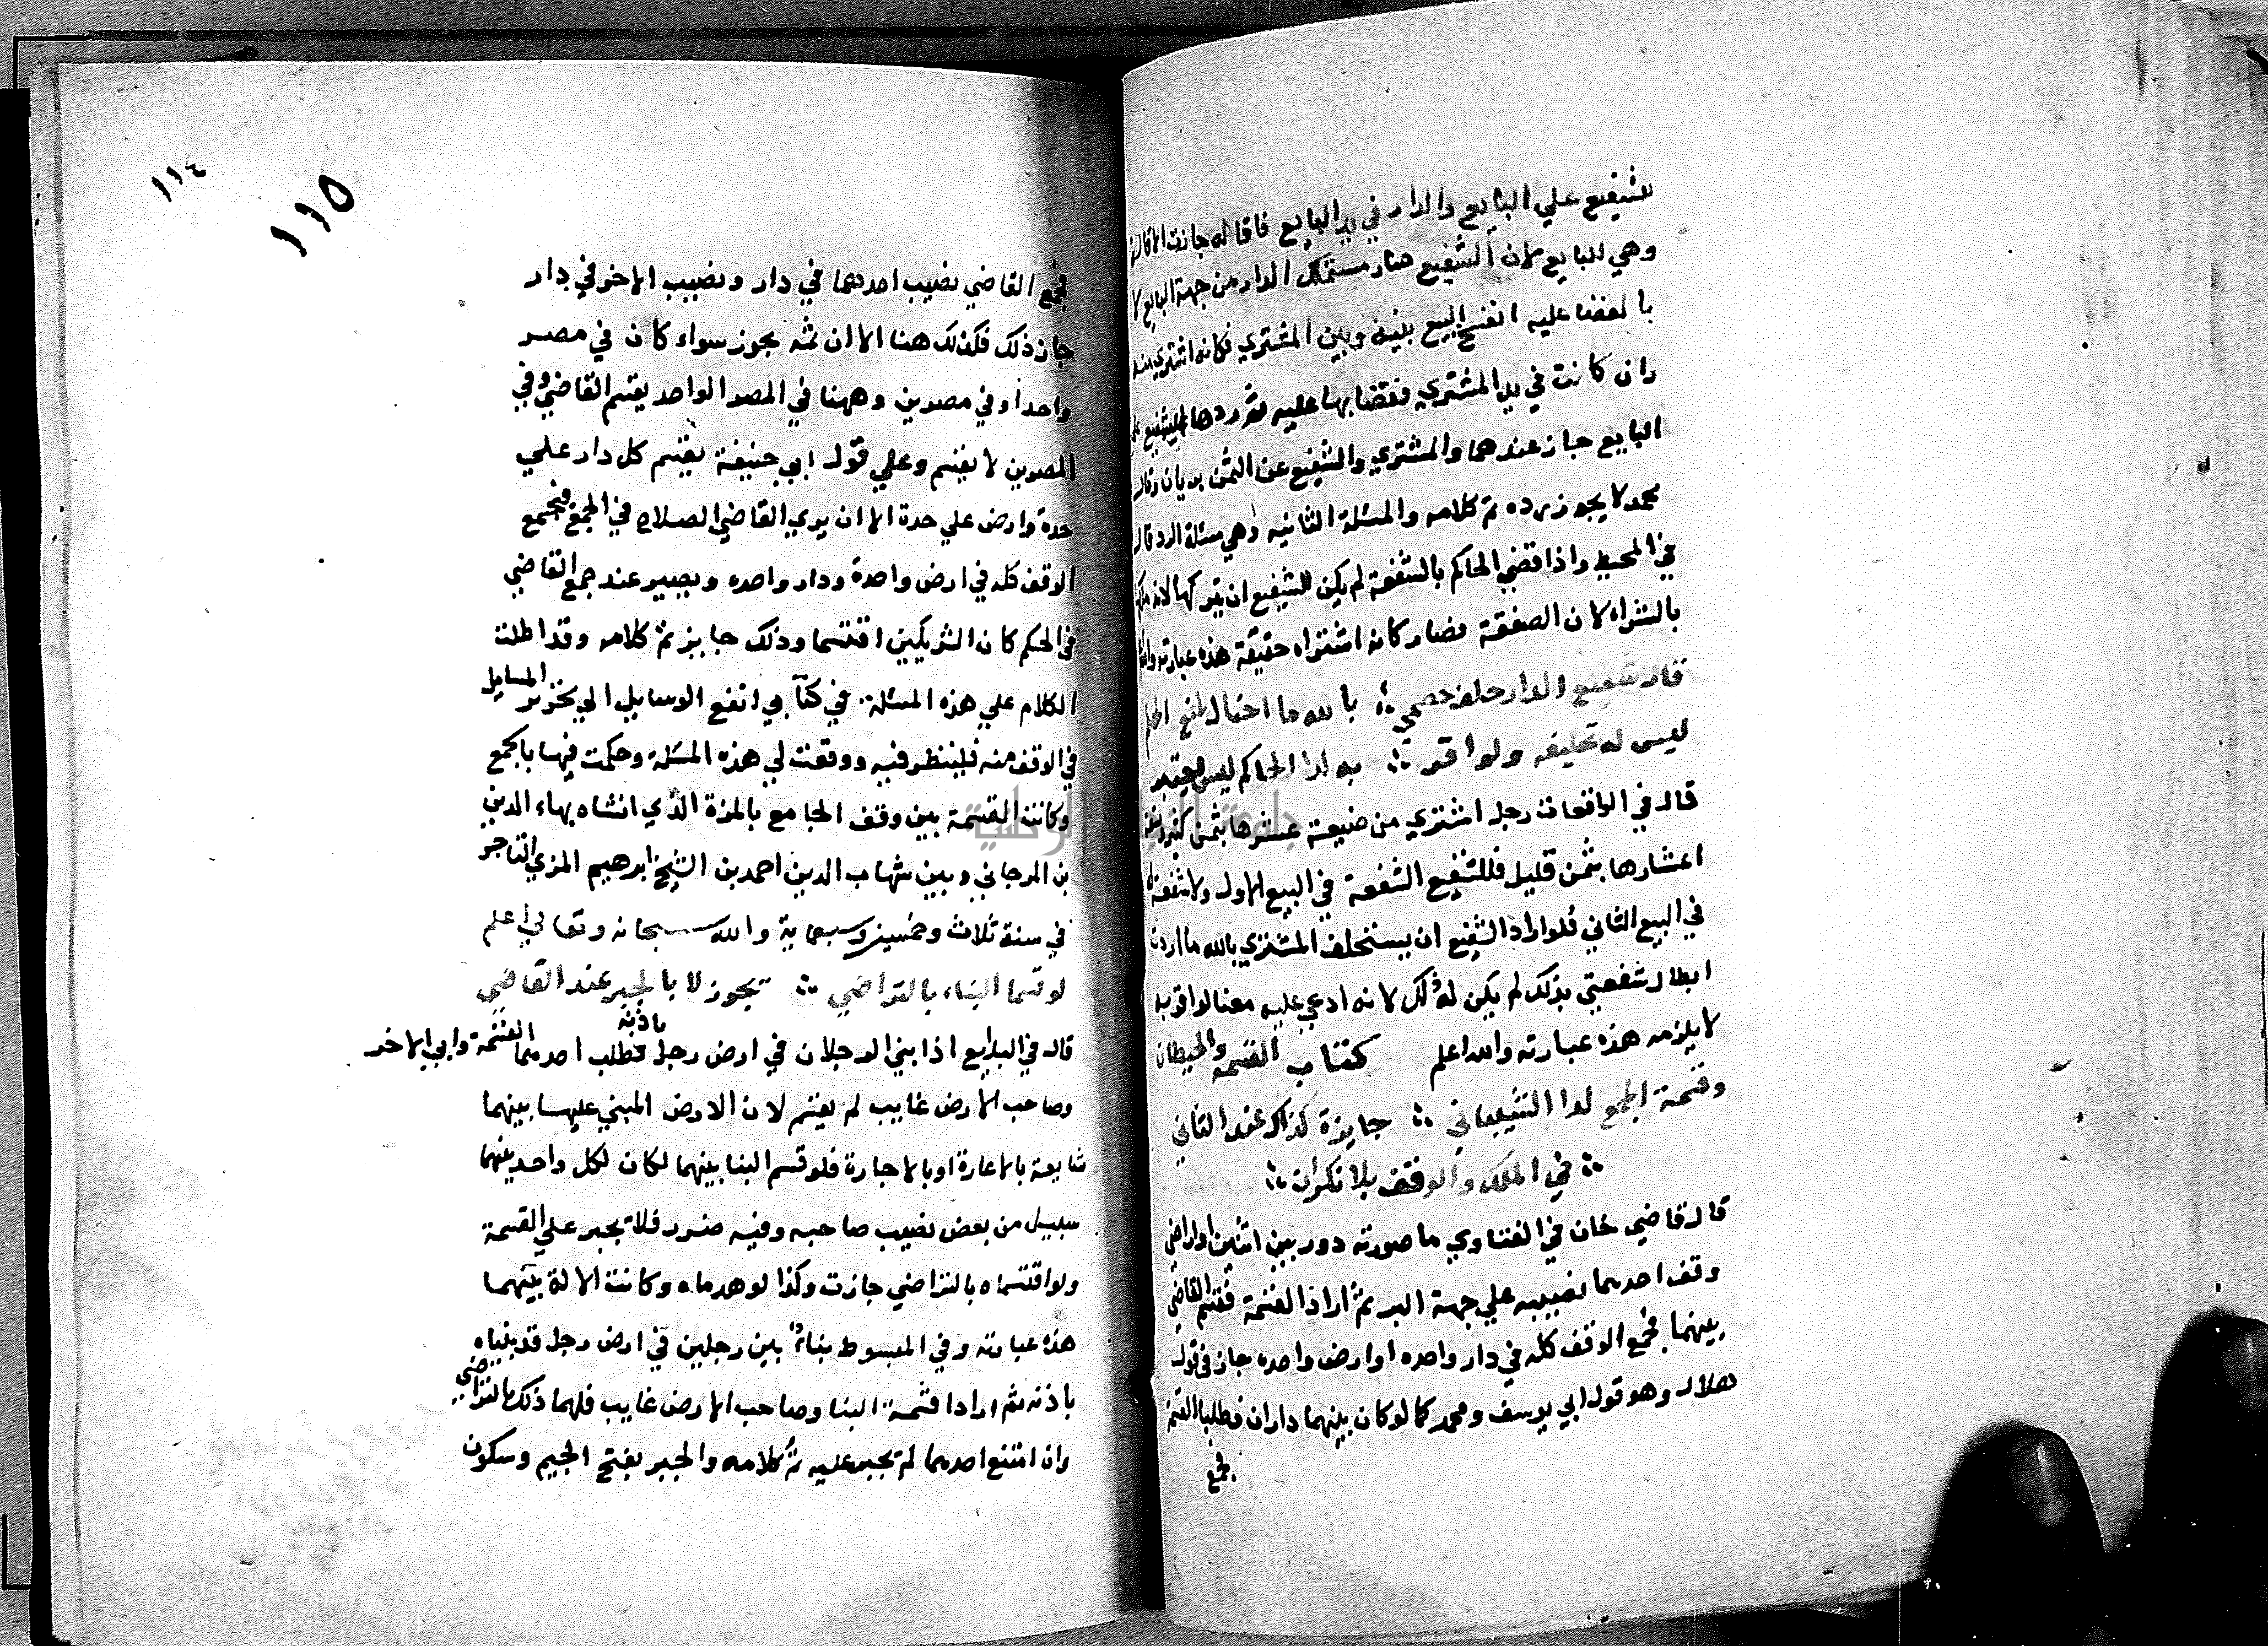 للشفيع علي البايع والدار في يد البايع فاقاله جازت الاقالة
وهي للبايع لان الشفيع صار مستملك الدار من جهة البايع لا
بالقضا عليه انفسخ البيع بينه وبين المشتري فكانه اشتري منه
وان كانت في يد المشتري فقضا بها عليه فردها الشفيع علي
البايع جاز عندهما والمشتري والشفيع عن الثمن بريان وقال
محمد لا يجوز رده تم كلامه والمسئلة الثانيه وهي مسئلة الرد قال
في المحيط واذا قضي الحاكم بالشفعة لم يكن للشفيع ان يتركها لانه
بالشراء لان الصفقة فصار كانه اشتراه حقيقة هذه عبارته والله
قال شفيع الدار حلف خصمي ؛ بالله ما احتال لمنع
ليس له تحليفه ولو اقر ؛ به لدا الحاكم ليس يعتبر
قال في الواقعات رجل اشتري من ضيعة عشرها بثمن كثير وبقية
اعشارها بثمن قليل فللشفيع الشفعة في البيع الاول ولا شفعة له
في البيع الثاني فلو اراد الشفيع ان يستحلف المشتري بالله ما اردت
ابطال شفعتي بذلك لم يكن له ذلك لانه ادعي عليه معنا لو اقر به
لا يلزمه هذه عبارته والله اعلم كتاب القسمة والحيطان
وقسمة الجمع لدا الشيباني ؛ جايزة كذاك عند الثاني
؛ في الملك والوقف بلا نكران ؛
قال قاضي خان في الفتاوي ما صورته دور بين اثنين واراضي
وقف احدهما نصيبه علي جهة البر ثم اراد القسمة فقسم القاضي
بينهما فجمع الوقف كله في دار واحده او ارض واحده جاز في قول
هلال وهو قول ابي يوسف ومحمد كما لو كان بينهما داران فطلبا القسمة
فجمع
١١٤
١١٥
فجمع القاضي نصيب احدهما في دار ونصيب الاخر في دار
جاز ذلك فكذلك هنا الا ان ثمه يجوز سواء كان في مصر
واحد او في مصرين وههنا في المصر الواحد يقسم القاضي وفي
المصرين لا يقسم وعلي قول ابي حنيفة يقسم كل دار علي
حدة وارض علي حدة الا ان يري القاضي الصلاح في الجمع فيجمع
الوقف كله في ارض واحدة ودار واحده ويصير عند جمع القاضي
في الحكم كان الشريكين اقتسما وذلك جايز تم كلامه وقد اطلت
الكلام علي هذه المسئلة في كتابي انفع الوسايل الي تحرير المسايل
في الوقف منه فلينظر فيه ووقعت لي هذه المسئلة وحكمت فيها بالجمع
وكانت القسمة بين وقف الجامع بالمزة الذي انشاه بهاء الدين
بن المرجاني وبين شهاب الدين احمد بن الشيخ ابرهيم المزي التاجر
في سنة ثلاث وخمسين وسبعماية والله سبحانه وتعالي اعلم
لو قسما البناء بالتراضي ؛ تجوز لا بالجبر عند القاضي
قال في البدايع اذا بني الرجلان في ارض رجل باذنه فطلب احدهما القسمة وابي الاخر
وصاحب الارض غايب لم يقسم لان الارض المبني عليها بينهما
شايعة بالاعارة او بالاجارة فلو قسم البنا بينهما لكان لكل واحد منهما
سبيل من بعض نصيب صاحبه وفيه ضرر فلا تجبر علي القسمة
ولو اقتسماه بالتراضي جازت وكذا لو هدماه وكانت الالة بينهما
هذه عبارته وفي المبسوط بناء بين رجلين في ارض رجل قد بنياه
باذنه ثم ارادا قسمة البنا وصاحب الارض غايب فلهما ذلك بالتراضي
وان امتنع احدهما لم تجبر عليه تم كلامه والجبر بفتح الجيم وسكون